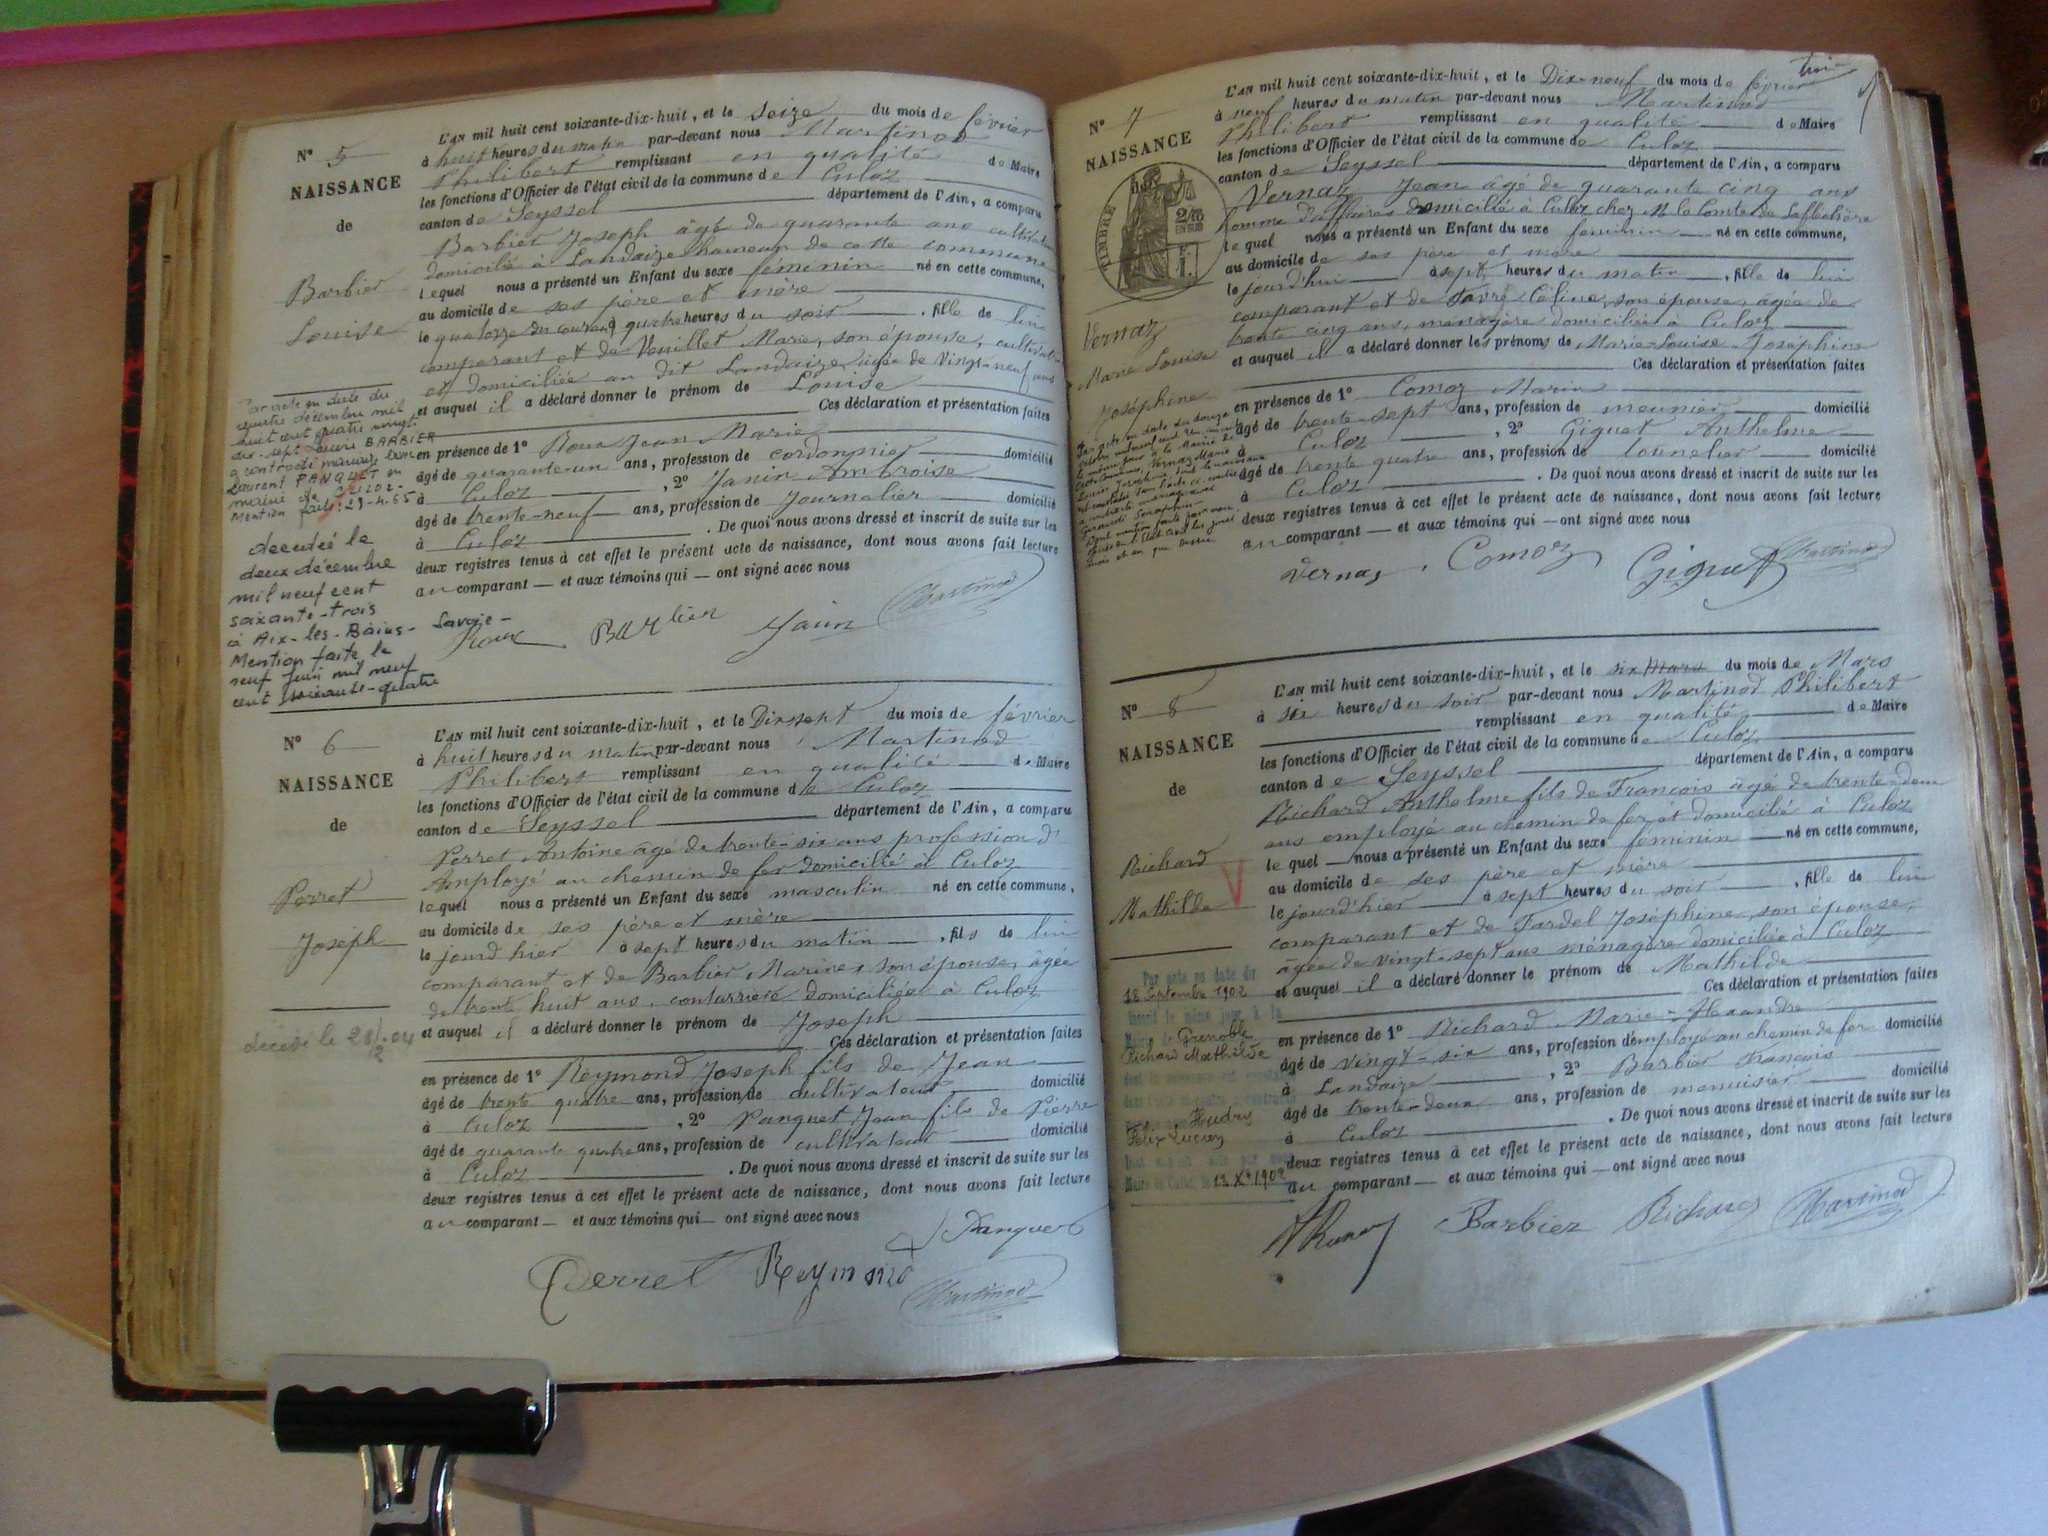 N° 5
NAISSANCE
de
Barbier
Louise
L'AN mil huit cent soixante-dix-huit, et le seize du mois de février
à huit heures du matin par-devant nous Martinod
Philibert remplissant en qualité de Maire
les fonctions d'Officier de l'état civil de la commune de Culoz
canton de Seyssel département de l'Ain, a comparu
Barbier Joseph âgé de quarante ans cultivateur
domicilié à Landaize hameau de cette commune
lequel nous a présenté un Enfant du sexe féminin né en cette commune,
au domicile de ses père et mère
le quatorze du courant à quatre heures du soir, fille de lui
comparant et de Vouillet Marie, son épouse, cultivatrice
et domiciliée au dit Landaize, âgée de vingt-neuf ans
et auquel il a déclaré donner le prénom de Louise
Ces déclaration et présentation faites
en présence de 1° Roux Jean Marie
âgé de quarante-un ans, profession de cordonnier domicilié
à Culoz, 2° Janin Ambroise
âgé de trente-neuf ans, profession de Journalier domicilié
à Culoz. De quoi nous avons dressé et inscrit de suite sur les
deux registres tenus à cet effet le présent acte de naissance, dont nous avons fait lecture
au comparant — et aux témoins qui — ont signé avec nous
Roux Barbier Janin Martinod
Par acte en date du
quatre décembre mil
huit cent quatre vingt
dix-sept Louise BARBIER
a contracté mariage avec
Laurent PANQUET en
mairie de CULOZ -
Mention faite: 29-4-65
décédée le
deux décembre
mil neuf cent
soixante-trois
à Aix-les-Bains- Savoie-
Mention faite le
neuf juin mil neuf
cent soixante-quatre
N° 6
NAISSANCE
de
Perret
Joseph
décédé le
L'AN mil huit cent soixante-dix-huit, et le Dix-sept du mois de février
à huit heures du matin par-devant nous Martinod
Philibert remplissant en qualité de Maire
les fonctions d'Officier de l'état civil de la commune de Culoz
canton de Seyssel département de l'Ain, a comparu
Perret Antoine âgé de trente-six ans profession d'
Employé au chemin de fer domicilié à Culoz
lequel nous a présenté un Enfant du sexe masculin né en cette commune,
au domicile de ses père et mère
le jourd'hier à sept heures du matin, fils de lui
comparant et de Barbier Marine, son épouse, âgée
de trente huit ans, couturière domiciliée à Culoz
et auquel il a déclaré donner le prénom de Joseph
Ces déclaration et présentation faites
en présence de 1° Reymond Joseph fils de Jean
âgé de trente quatre ans, profession de cultivateur domicilié
à Culoz, 2° Panquet Jean fils de Pierre
âgé de quarante quatre ans, profession de cultivateur domicilié
à Culoz. De quoi nous avons dressé et inscrit de suite sur les
deux registres tenus à cet effet le présent acte de naissance, dont nous avons fait lecture
au comparant — et aux témoins qui — ont signé avec nous
Perret Reymond Panquet
Martinod
trois
N° 7
NAISSANCE
TIMBRE
Vernaz
Marie Louise
Joséphine
L'AN mil huit cent soixante-dix-huit, et le Dix-neuf du mois de février
à neuf heures du matin par-devant nous Martinod
Philibert remplissant en qualité de Maire
les fonctions d'Officier de l'état civil de la commune de Culoz
canton de Seyssel département de l'Ain, a comparu
Vernaz Jean âgé de quarante cinq ans
homme d'affaires domicilié à Culoz chez M. le Comte de Lafléchère
lequel nous a présenté un Enfant du sexe féminin né en cette commune,
au domicile de ses père et mère
le jourd'hui à sept heures du matin, fille de lui
comparant et de Favre Céline, son épouse, âgée de
trente cinq ans, ménagère domiciliée à Culoz
et auquel il a déclaré donner les prénoms de Marie-Louise Joséphine
Ces déclaration et présentation faites
en présence de 1° Comoz Marin
âgé de trente-sept ans, profession de meunier domicilié
à Culoz, 2° Giguet Anthelme
âgé de trente quatre ans, profession de tonnelier domicilié
à Culoz. De quoi nous avons dressé et inscrit de suite sur les
deux registres tenus à cet effet le présent acte de naissance, dont nous avons fait lecture
au comparant — et aux témoins qui — ont signé avec nous
Vernaz Comoz Giguet Martinod
N° 8
NAISSANCE
de
Richard
Mathilde
L'AN mil huit cent soixante-dix-huit, et le six Mars du mois de Mars
à six heures du soir par-devant nous Martinod Philibert
remplissant en qualité de Maire
les fonctions d'Officier de l'état civil de la commune de Culoz
canton de Seyssel département de l'Ain, a comparu
Richard Anthelme fils de François âgé de trente-deux
ans employé au chemin de fer, et domicilié à Culoz
lequel — nous a présenté un Enfant du sexe féminin né en cette commune,
au domicile de ses père et mère
le jourd'hier à sept heures du soir, fille de lui
comparant et de Fardel Joséphine, son épouse,
âgée de vingt-sept ans ménagère domiciliée à Culoz
et auquel il a déclaré donner le prénom de Mathilde
Ces déclaration et présentation faites
en présence de 1° Richard Marie-Alexandre
âgé de vingt-six ans, profession d'employé au chemin de fer domicilié
à Landaize, 2° Barbier François
âgé de trente-deux ans, profession de menuisier domicilié
à Culoz. De quoi nous avons dressé et inscrit de suite sur les
deux registres tenus à cet effet le présent acte de naissance, dont nous avons fait lecture
au comparant — et aux témoins qui — ont signé avec nous
Barbier Richard Martinod
Par acte en date du
18 Septembre 1902
inscrit le même jour à la
Mairie de Grenoble
Richard Mathilde
Félix Lucien
Maire de Culoz, le 13 Xe 1902